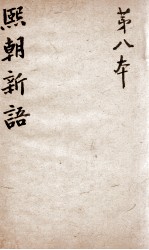 第八本
熙朝新語